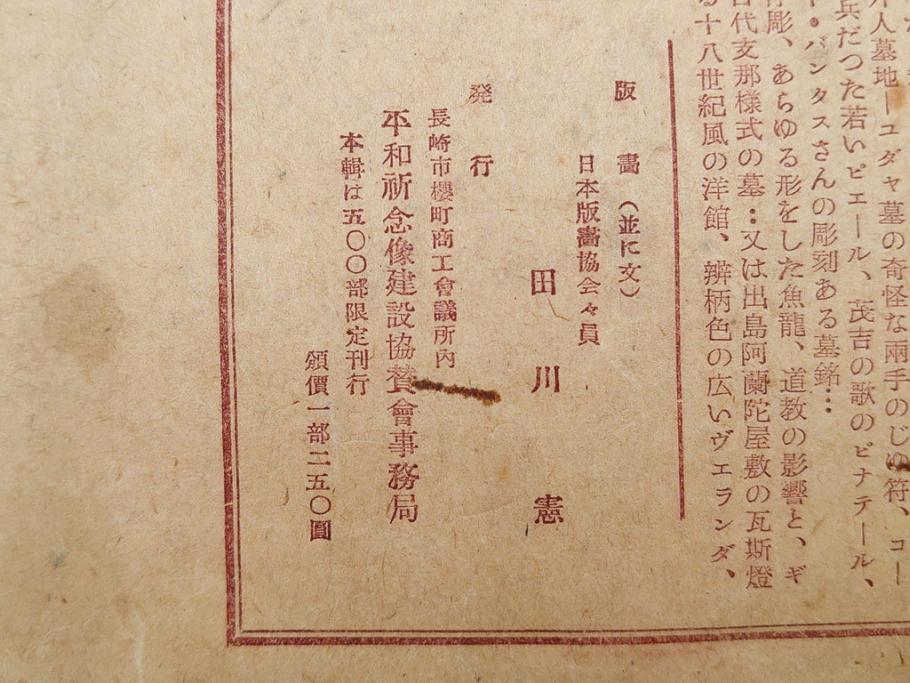 人墓地―ユダヤ墓の奇怪な兩手のじゆ符、コー
兵だつた若いピエール、茂吉の歌のピナテール、
ト・パンタスさんの彫刻ある墓銘…
彫、あらゆる形をした魚龍、道教の影響と、ギ
古代支那様式の墓:又は出島阿蘭陀屋敷の瓦斯燈
る十八世紀風の洋館、辨柄色の広いヴェランダ、
版畫(並に文)
日本版畫協会々員
田川憲
発行
長崎市櫻町商工會議所内
平和祈念像建設協賛會事務局
本輯は五〇〇部限定刊行
頒價一部二五〇圓